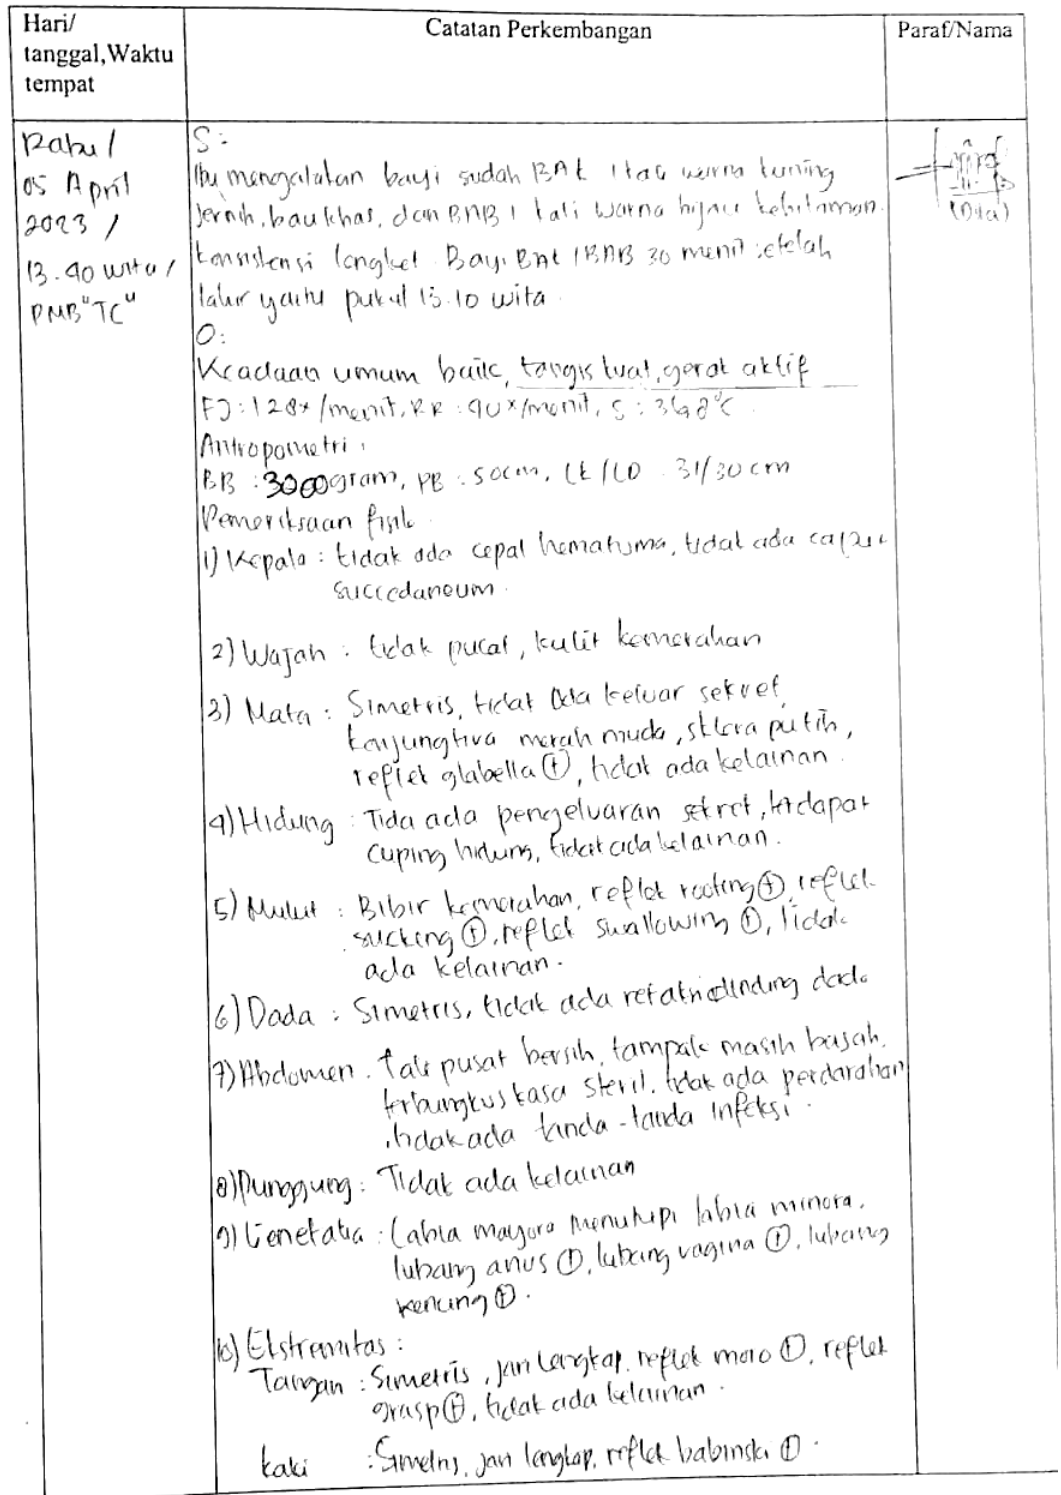 Hari/
tanggal,Waktu
tempat
Catatan Perkembangan
Paraf/Nama
Rabu /
05 April
2023 /
13.40 wita /
PMB "TC"
S :
Ibu mengatakan bayi sudah BAK 1 kali warna kuning
jernih, bau khas, dan BAB 1 kali warna hijau kehitaman.
konsistensi lengket. Bayi BAK / BAB 30 menit setelah
lahir yaitu pukul 13.10 wita.
O :
Keadaan umum baik, tangis kuat, gerak aktif
FJ : 128x /menit, RR : 40x/menit, S : 36,8°C
Antropometri :
BB : 3000gram, PB : 50cm, LK /LD 31/30 cm
Pemeriksaan fisik
1) Kepala : tidak ada cepal hematuma, tidak ada caput
succedaneum.
2) Wajah : tidak pucat, kulit kemerahan
3) Mata : Simetris, tidak ada keluar sekret,
konjungtiva merah muda, sklera putih,
reflek glabella (+), tidak ada kelainan.
4) Hidung : Tida ada pengeluaran sekret, terdapat
cuping hidung, tidak ada kelainan.
5) Mulut : Bibir kemerahan, reflek rooting (+), reflek
sucking (+), reflek swallowing (+), tidak
ada kelainan.
6) Dada : Simetris, tidak ada dinding dada
7) Abdomen : tali pusat bersih, tampak masih basah,
terbungkus kasa steril, tidak ada perdarahan
, tidak ada tanda-tanda infeksi.
8) Punggung : Tidak ada kelainan
9) Genetalia : Labia mayora menutupi labia minora,
lubang anus (+), lubang vagina (+), lubang
kencing (+).
10) Ekstremitas :
Tangan : Simetris, jari lengkap, reflek moro (+), reflek
grasp (+), tidak ada kelainan.
kaki : Simetris, jari lengkap, reflek babinski (+).